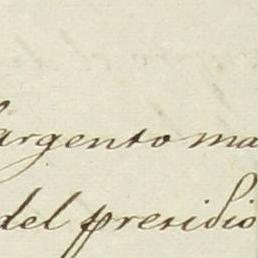 argento ma
del presidio